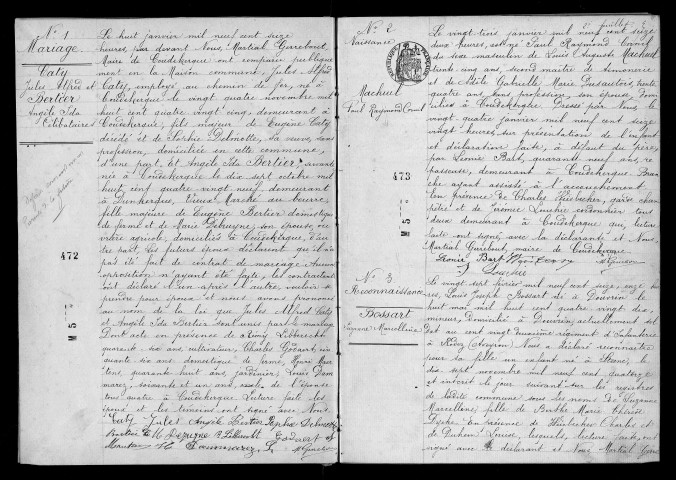 N° 1
Mariage
Caty
Jules Alfred et
Bertier
Angèle Ida
Célibataires
472
M 5
Le huit janvier mil neuf cent seize
heures, par devant Nous, Martial
Maire de Coudekerque ont comparu publique
ment en la Maison commune, Jules Alfred
Caty, employé au chemin de fer, né à
Coudekerque le vingt quatre novembre mil
huit cent quatre vingt cinq, demeurant à
Coudekerque; fils majeur de Eugène Caty
décédé et de Sophie sa veuve, sans
profession, domiciliée en cette commune
d'une part. Et Angèle Ida Bertier, servante
née à Coudekerque le dix sept octobre mil
huit cent quatre vingt neuf, demeurant
à Dunkerque, Vieux Marché au beurre,
fille majeure de Eugène Bertier domestique
de ferme et de Marie son épouse, ou
vrière agricole, domiciliés à Coudekerque, d'au
tre part. Les futurs époux déclarent qu'il n'a
pas été fait de contrat de mariage. Aucune
opposition n'ayant été faite, les contractants
ont déclaré l'un après l'autre, vouloir se
prendre pour époux et nous avons prononcé
au nom de la loi que Jules Alfred Caty
et Angèle Ida Bertier sont unis par le mariage
Dont acte en présence de Rémy
quarante six ans cultivateur, Charles
quante six ans domestique de ferme, Henri
quarante huit ans jardinier, Louis
soixante et un ans, de l'épouse
tous quatre à Coudekerque. Lecture faite les
époux et les témoins ont signé avec Nous
Caty Jules Angèle Bertier Sophie
N° 2
Naissance
Macheul
Paul Raymond Cornil
473
M 5
Le vingt trois janvier mil neuf cent seize
deux heures, est né Paul Raymond Cornil
du sexe masculin de Louis Auguste Macheul
trente cinq ans, second maître de timonerie
et de Gabrielle Marie trente
quatre ans, son épouse domi
ciliés à Coudekerque. Dressé par Nous, le vingt
quatre janvier mil neuf cent seize
heures, sur présentation de l'enfant
et déclaration faite, à défaut du père,
par Léonie Bart, quarante neuf ans, re
passeuse, demeurant à Coudekerque Bran
che ayant assisté à l'accouchement.
En présence de Charles garde cham
pêtre et de Jérémie cordonnier tous
deux demeurant à Coudekerque, qui, lecture
faite ont signé, avec la déclarante et Nous
Martial maire de Coudekerque
Léonie Bart
N° 3
Reconnaissance
Bossart
Suzanne Marcelline
Le vingt sept février mil neuf cent seize, onze heu
res, Louis Joseph Bossart né à Douvrin le
huit mai mil huit cent quatre vingt dix,
mineur, domicilié à Douvrin, actuellement sol
dat au cent vingt deuxième régiment d'Infanterie
à Rodez (Aveyron) Nous a déclaré reconnaître
pour sa fille un enfant né à le
dix sept novembre mil neuf cent quatorze
et inscrit le jour suivant sur les registres
de ladite commune sous les noms de Suzanne
Marcelline, fille de Berthe Marie Thérèse
En présence de Charles et
de Louise, lesquels, lecture faite, ont
signé avec le déclarant et Nous Martial